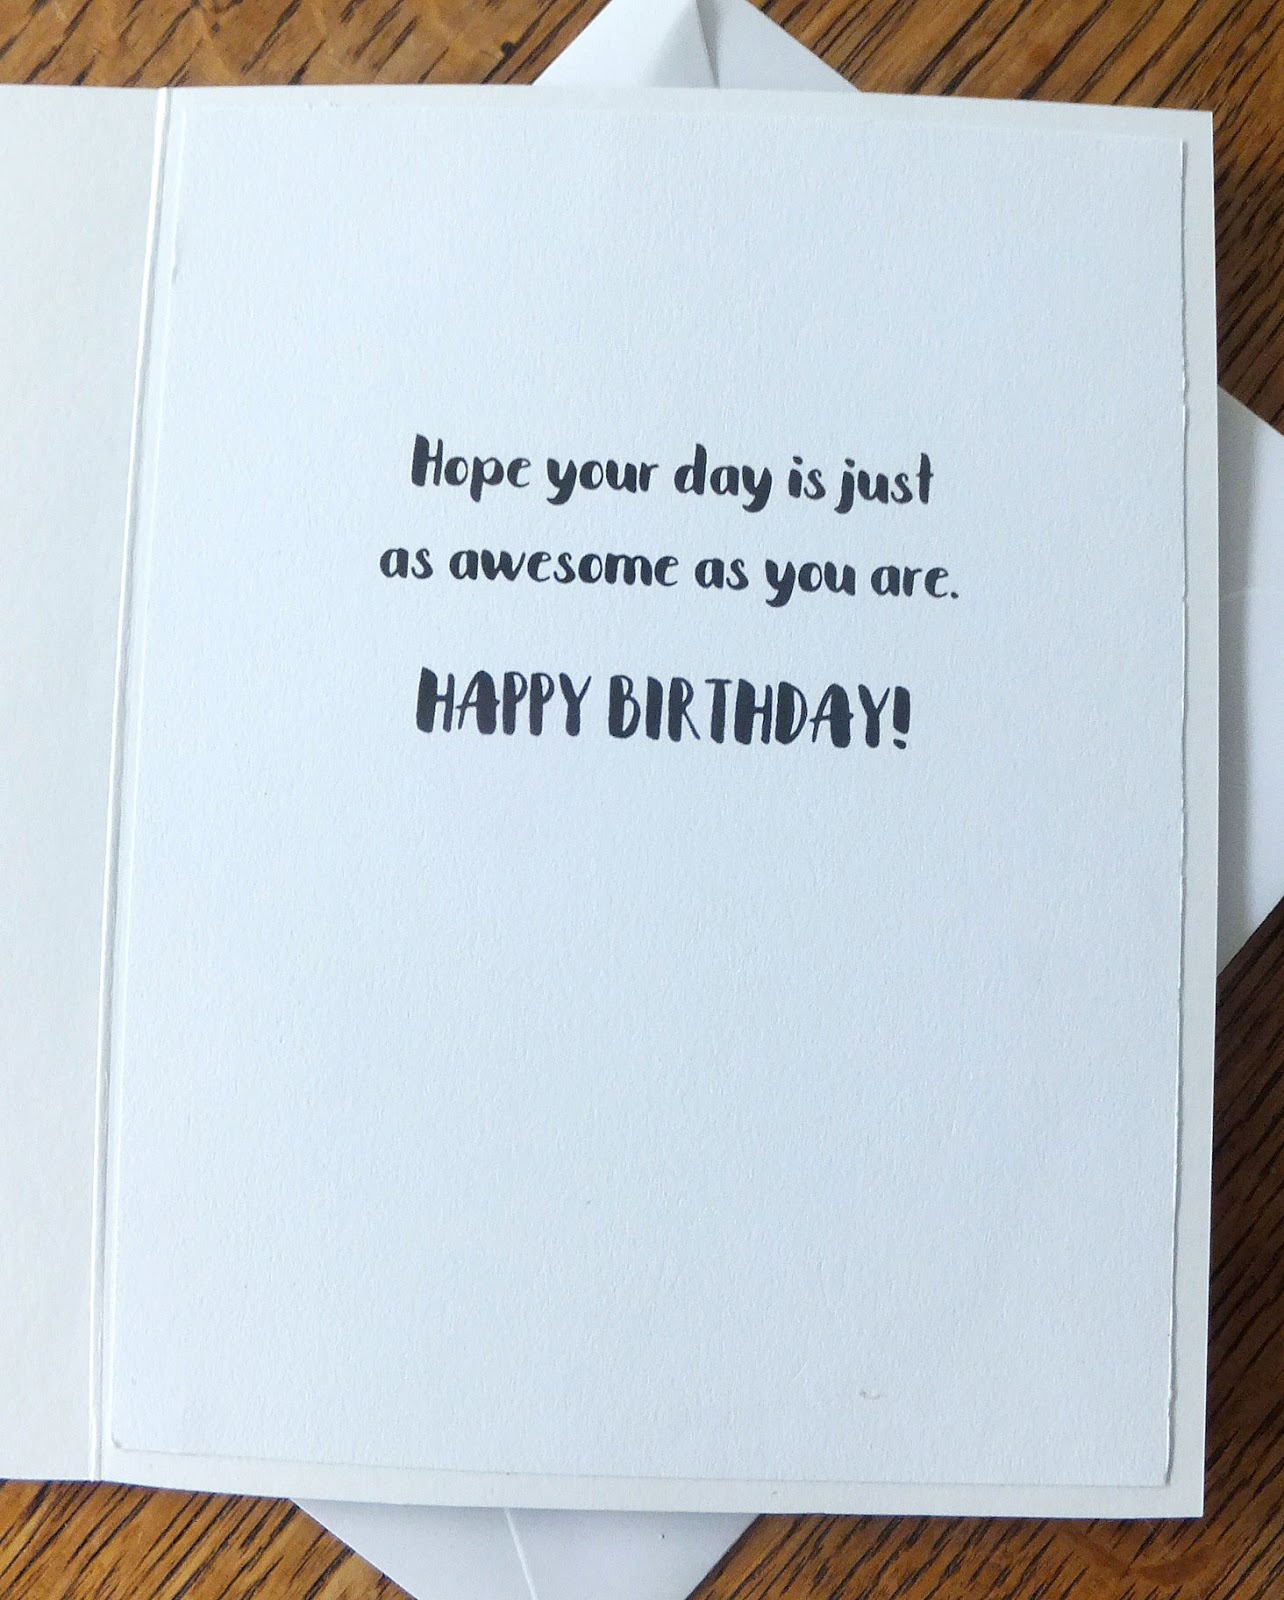 Hope your day is just
as awesome as you are.
HAPPY BIRTHDAY!